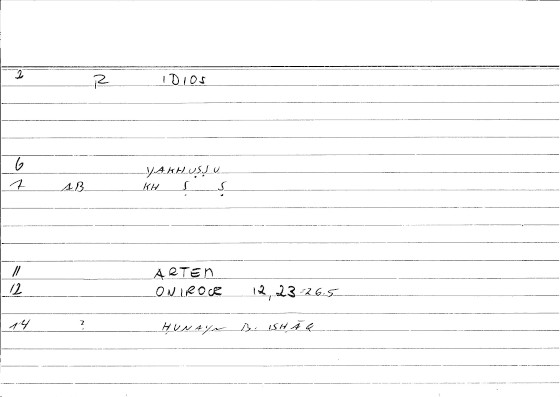 2 R IDIOS
6 YAKHUṢṢU
7 AB KH Ṣ Ṣ
11 ARTEM
12 ONIROCR 12, 23-26.5
14 ? ḤUNAYN B. ISḤĀQ